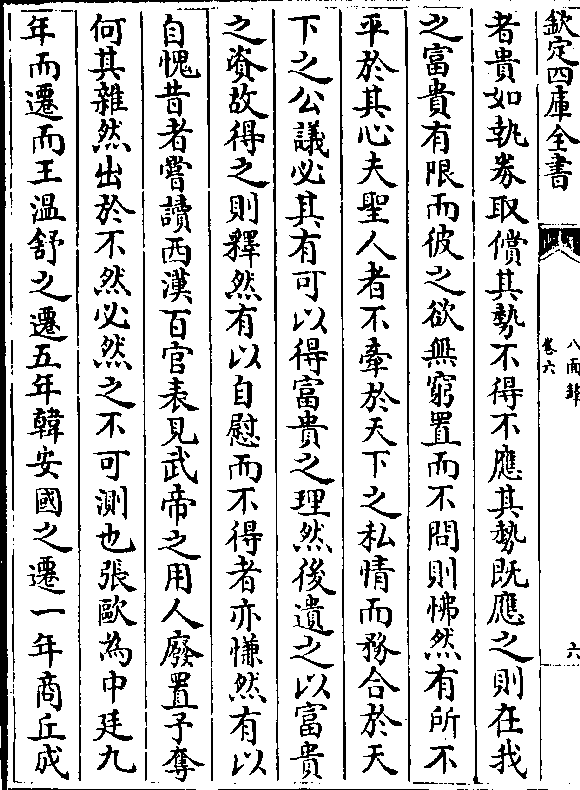 欽定四庫全書
八面鋒
卷六
六
者貴如執券取償其勢不得不應其勢既應之則在我
之富貴有限而彼之欲無窮置而不問則怫然有所不
平於其心夫聖人者不牽於天下之私情而務合於天
下之公議必其有可以得富貴之理然後遺之以富貴
之資故得之則釋然有以自慰而不得者亦慊然有以
自愧昔者嘗讀西漢百官表見武帝之用人廢置予奪
何其雜然出於不然必然之不可測也張歐為中廷九
年而遷而王溫舒之遷五年韓安國之遷一年商丘成